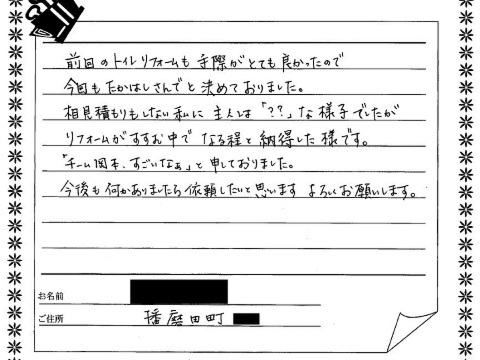 前回のトイレリフォームも手際がとても良かったので
今回もたかはしさんでと決めておりました。
相見積もりもしない私に主人は「??」な様子でしたが
リフォームがすすむ中でなる程と納得した様です。
「チーム岡本、すごいなぁ」と申しておりました。
今後も何かありましたら依頼したいと思います よろしくお願いします。
お名前
ご住所 播磨田町